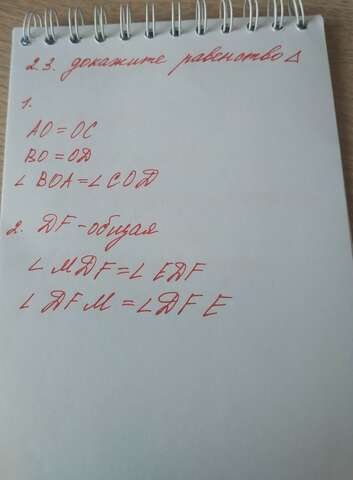 23. докажите равенство Δ
1.
AO = OC
BO = OD
∠ BOA = ∠ COD
2. DF - общая
∠ MDF = ∠ EDF
∠ DFM = ∠ DFE